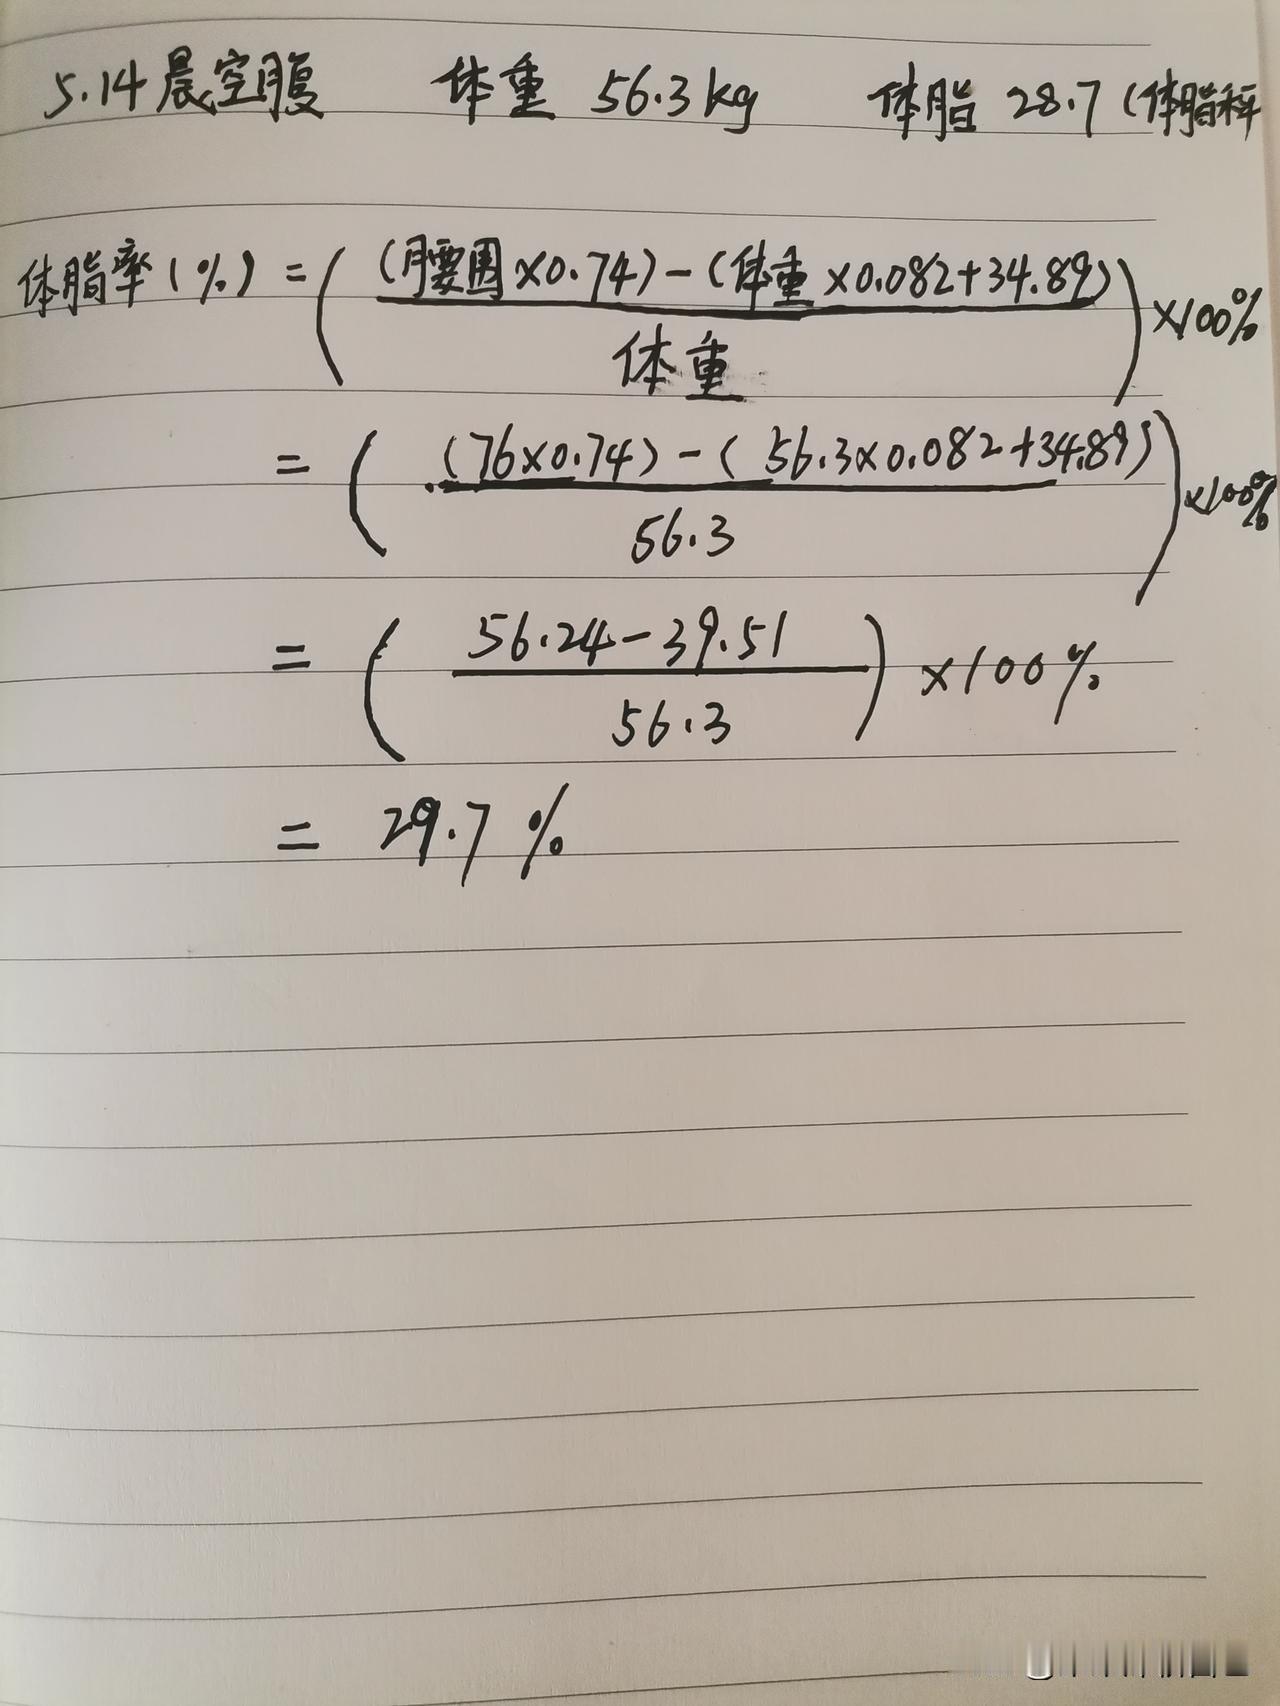 5.14晨空腹 体重 56.3kg 体脂 28.7 (体脂秤
体脂率(%) = ( (腰围×0.74)-(体重×0.082+34.89) ) ×100%
体重
= ( (76×0.74)-(56.3×0.082+34.89) ) ×100%
56.3
= ( 56.24-39.51 ) ×100%
56.3
= 29.7%